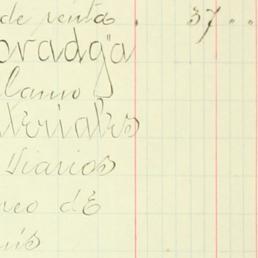 de renta . 37 . .
oradga
lamo
teriales
Diarios
reo dE
uis